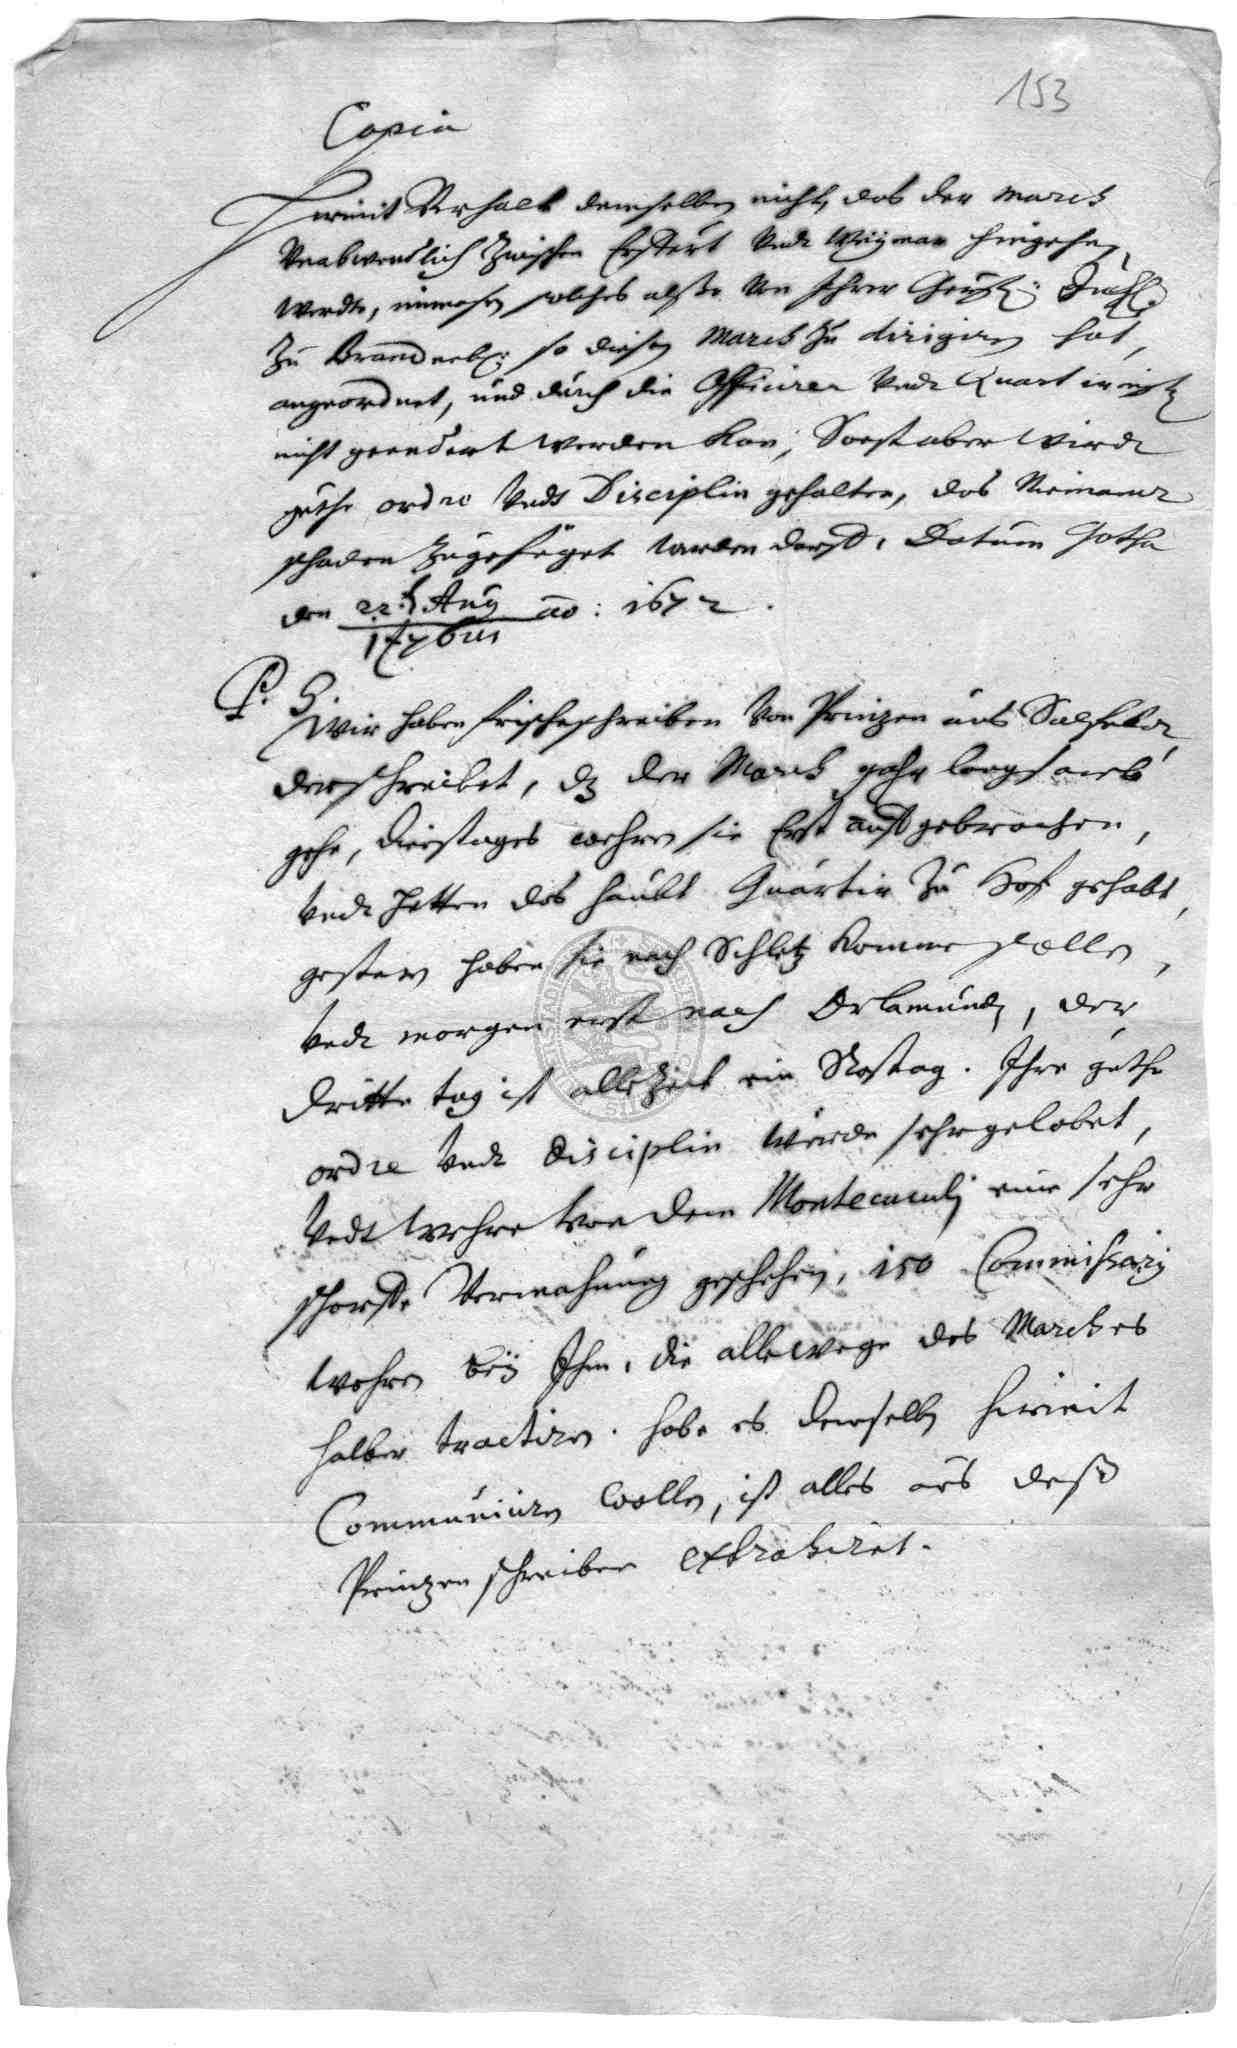 153
Copia
Hiermit Verhalt demselben nicht, das der march
Unabwendlich zwischen Erffurt Undt Weymar hingehen
werdte, immaßen solches alßo Von Ihrer Churfl: Durchl:
zu Brandenb: so diesen March zu dirigiren hat,
angeordnet, und durch die Officirer Undt Quartirmstr
nicht geendert werden kan, Sonst aber wirdt
guthe ordre Undt Disciplin gehalten, das Niemandt
schaden zugefüget werden darff. Datum Gotha
den 22 Aug ao: 1672.
1 7bris
P. S.
Wir haben frische schreiben Von Prinzen aus Salfeldt
der schreibet, dz der March gahr langsamb
gehe, dienstages wehren sie Erst auffgebrochen,
Undt hetten das haubt Quartir zu Hoff gehabt,
gestern haben sie nach Schletz kommen sollen,
Undt morgen erst nach Orlamundt, der
dritte tag ist allezeit ein Rastag. Ihre guthe
ordre Undt disciplin würde sehr gelobet,
Undt wehre Von dem Montecuculj eine sehr
scharffe Vermahnung geschehen, 150 Commissarij
wehren beÿ Ihm, die allewege des Marches
halber tractiren. habe es demselben hiermit
Communiciren wollen, ist alles aus deß
Prinzen schreiben extrahiret.